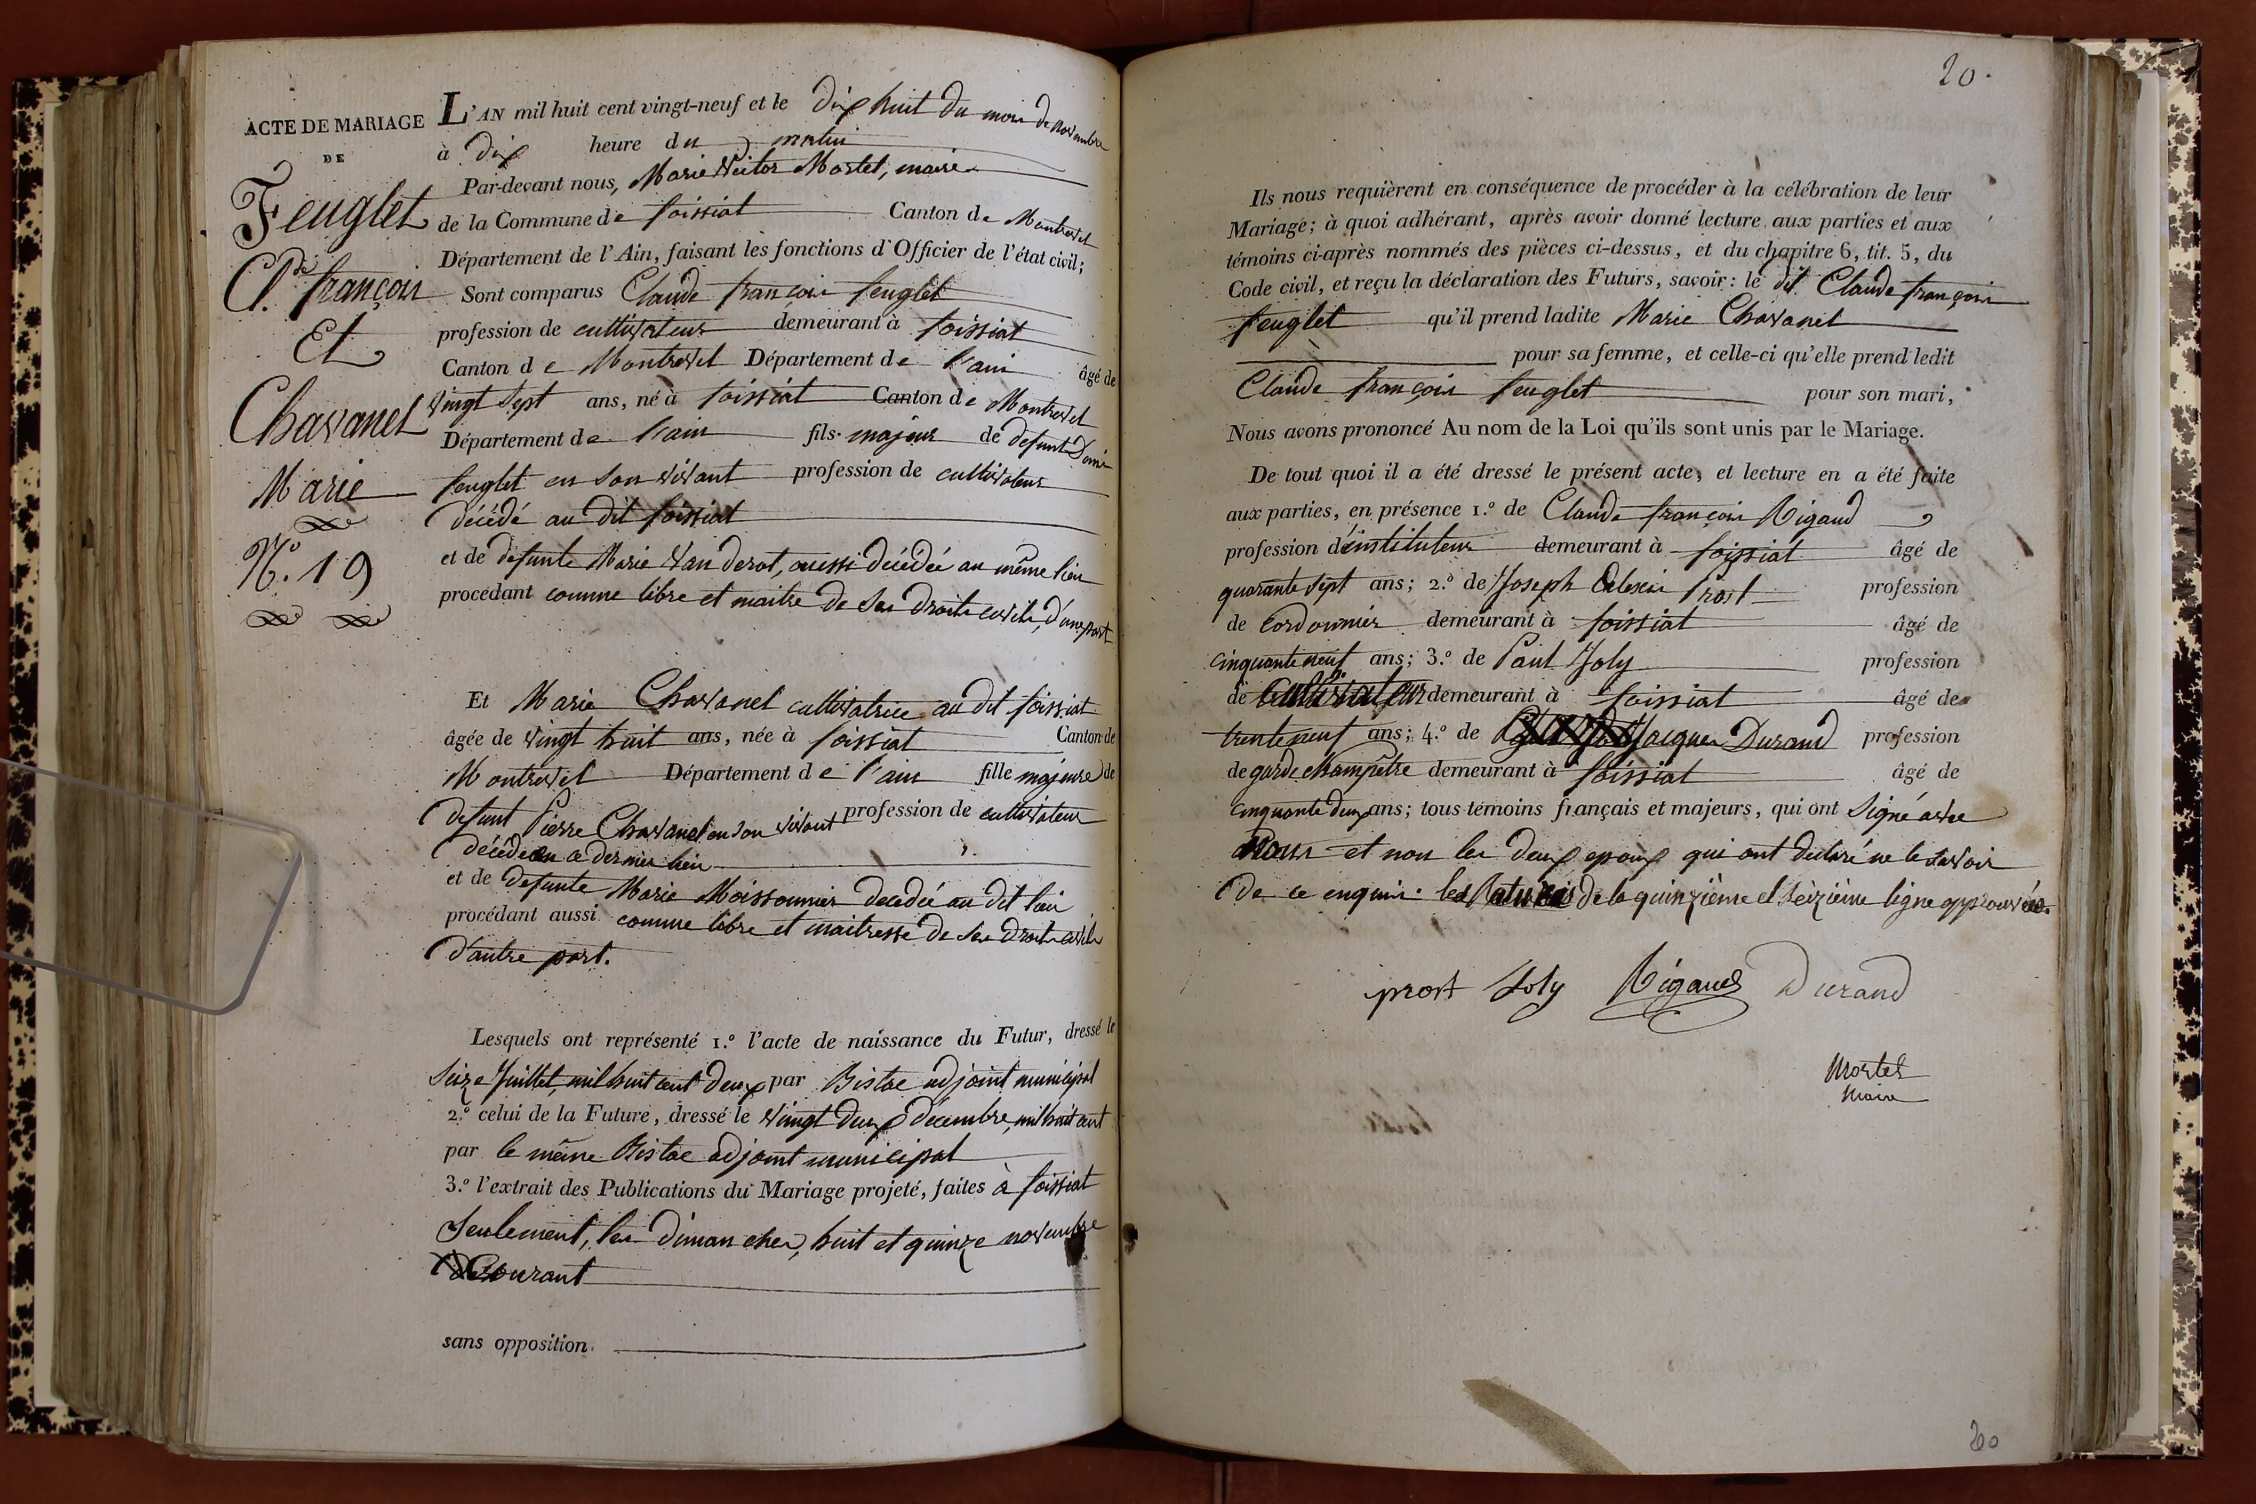 ACTE DE MARIAGE
DE
Feuglet
Cl.de françois
Et
Chavanel
Marie
N.o 19
L'AN mil huit cent vingt-neuf et le dix huit du mois de novembre
à dix heure du matin
Par-devant nous, Marie Victor Mortel, maire
de la Commune de foissiat Canton de Montrevel
Département de l'Ain, faisant les fonctions d'Officier de l'état civil;
Sont comparus Claude françois feuglet
profession de cultivateur demeurant à foissiat
Canton de Montrevel Département de l'ain âgé de
vingt sept ans, né à foissiat Canton de Montrevel
Département de l'ain fils majeur de defunt Denis
feuglet en son vivant profession de cultivateur
décédé au dit foissiat
et de defunte Marie Vanderot, aussi décédée au même lieu
procédant comme libre et maitre de ses droits civils, d'une part
Et Marie Chavanel cultivatrice au dit foissiat
âgée de vingt huit ans, née à foissiat Canton de
Montrevel Département de l'ain fille majeure de
defunt Pierre Chavanel en son vivant profession de cultivateur
décédé en ce dernier lieu
et de defunte Marie Moissonnier decedée au dit lieu
procédant aussi comme libre et maitresse de ses droits civils
d'autre part.
Lesquels ont représenté 1.o l'acte de naissance du Futur, dressé le
Seize Juillet, mil huit cent deux par Bistac adjoint municipal
2.o celui de la Future, dressé le vingt deux décembre, mil huit cent
par le même Bistac adjoint municipal
3.o l'extrait des Publications du Mariage projeté, faites à foissiat
Seulement, les dimanches, huit et quinze novembre
Courant
sans opposition.
20.
Ils nous requièrent en conséquence de procéder à la célébration de leur
Mariage; à quoi adhérant, après avoir donné lecture aux parties et aux
témoins ci-après nommés des pièces ci-dessus, et du chapitre 6, tit. 5, du
Code civil, et reçu la déclaration des Futurs, savoir: le dit Claude françois
feuglet qu'il prend ladite Marie Chavanel
pour sa femme, et celle-ci qu'elle prend ledit
Claude françois feuglet pour son mari,
Nous avons prononcé Au nom de la Loi qu'ils sont unis par le Mariage.
De tout quoi il a été dressé le présent acte, et lecture en a été faite
aux parties, en présence 1.o de Claude françois Rigaud
profession d'instituteur demeurant à foissiat âgé de
quarante sept ans; 2.o de Joseph Alexis Prost profession
de Cordonnier demeurant à foissiat âgé de
cinquante neuf ans; 3.o de Paul Joly profession
de Cultivateur demeurant à foissiat âgé de
trente neuf ans; 4.o de Jacques Durand profession
de garde champêtre demeurant à foissiat âgé de
cinquante deux ans; tous témoins français et majeurs, qui ont Signé avec
Nous et non les deux epoux qui ont declaré ne le savoir
de ce enquis. les ratures de la quinzième et Seizième ligne approuvées.
prost Joly Rigaud Durand
Mortel
Maire
20